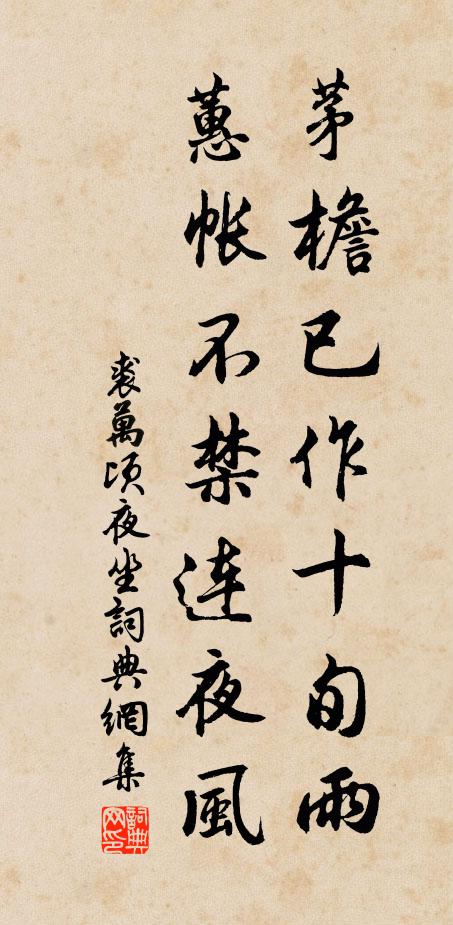 茅檐已作十旬雨
蕙帐不禁连夜風
裘萬頃夜坐詞典網集
詞典网印